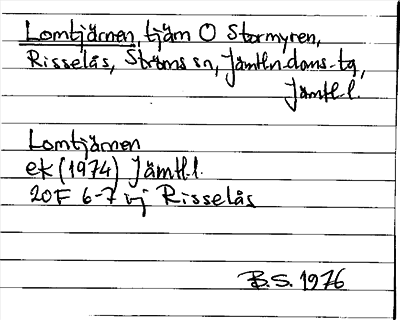 Lomtjärnen, tjärn O Stormyren,
Risselås, Ströms sn, Jämtln.doms.tg,
Jämtl.l.
Lomtjärnen
ek (1974) Jämtl.l.
20F 6-7 ij Risselås
B.S. 1976